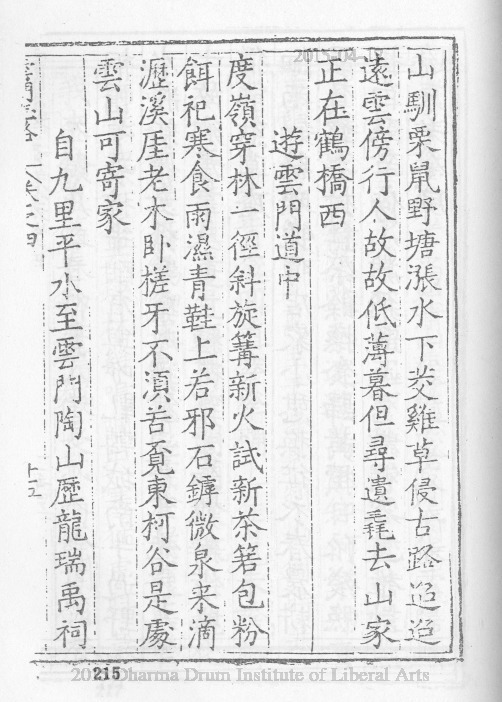 山馴栗鼠野塘漲水下茭雞草侵古路迢迢
遠雲傍行人故故低薄暮但尋遺毳去山家
正在鶴橋西
遊雲門道中
度嶺穿林一徑斜旋篝新火試新茶箬包粉
餌祀寒食雨濕青鞋上若邪石罅微泉来滴
瀝溪厓老木卧槎牙不湏苦覔東柯谷是處
雲山可寄家
自九里平水至雲門陶山歷龍瑞禹祠
卷之四
215
Dharma Drum Institute of Liberal Arts